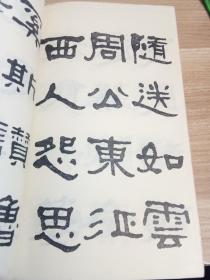 隨送如雲
周公東征
西人怨思
奚斯讚魯